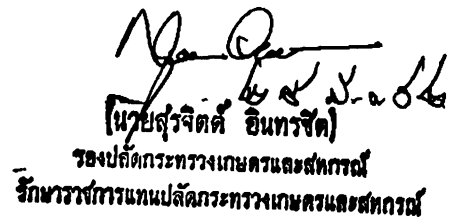 (นายสุรจิตต์ อินทรชิต)
รองปลัดกระทรวงเกษตรและสหกรณ์
รักษาราชการแทนปลัดกระทรวงเกษตรและสหกรณ์